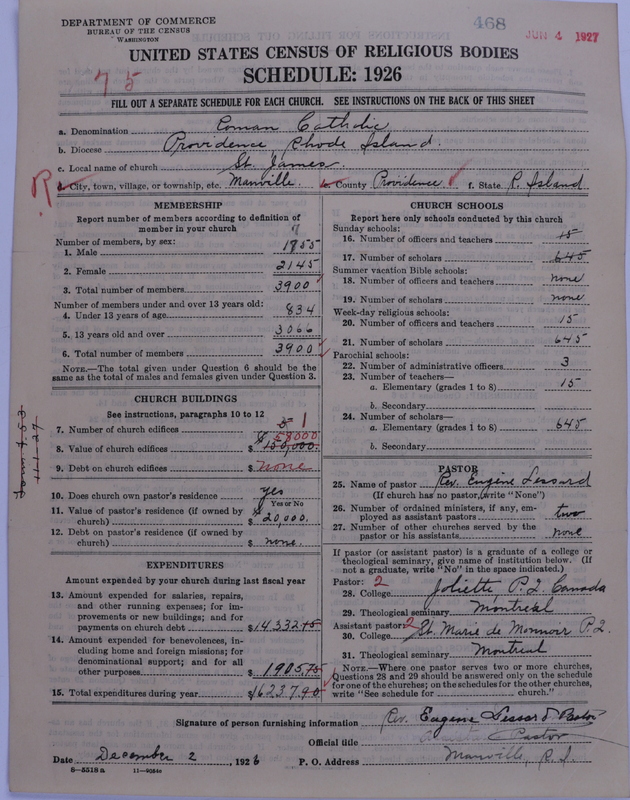 DEPARTMENT OF COMMERCE
BUREAU OF THE CENSUS
WASHINGTON
468
JUN 4 1927
UNITED STATES CENSUS OF RELIGIOUS BODIES
SCHEDULE: 1926
75
FILL OUT A SEPARATE SCHEDULE FOR EACH CHURCH. SEE INSTRUCTIONS ON THE BACK OF THIS SHEET
a. Denomination Roman Catholic
b. Diocese Providence, Rhode Island.
c. Local name of church St. James.
R
d. City, town, village, or township, etc. Manville. e. County Providence f. State R. Island
MEMBERSHIP
Report number of members according to definition of
member in your church
Number of members, by sex:
1. Male 1755
2. Female 2145
3. Total number of members 3900
Number of members under and over 13 years old:
4. Under 13 years of age 834
5. 13 years old and over 3066
6. Total number of members 3900
NOTE.—The total given under Question 6 should be
the same as the total of males and females given under Question 3.
CHURCH BUILDINGS
See instructions, paragraphs 10 to 12
7. Number of church edifices 1
8. Value of church edifices $ 58000
150,000.
9. Debt on church edifices $ none
10. Does church own pastor's residence yes
Yes or No
11. Value of pastor's residence (if owned by
church) $ 20000.
12. Debt on pastor's residence (if owned by
church) $ none.
EXPENDITURES
Amount expended by your church during last fiscal year
13. Amount expended for salaries, repairs,
and other running expenses; for im-
provements or new buildings; and for
payments on church debt $14332.15
14. Amount expended for benevolences, in-
cluding home and foreign missions; for
denominational support; and for all
other purposes $ 1905.75
15. Total expenditures during year $16237.90
CHURCH SCHOOLS
Report here only schools conducted by this church
Sunday schools:
16. Number of officers and teachers 15
17. Number of scholars 645
Summer vacation Bible schools:
18. Number of officers and teachers none
19. Number of scholars none
Week-day religious schools:
20. Number of officers and teachers 15
21. Number of scholars 645
Parochial schools:
22. Number of administrative officers 3
23. Number of teachers—
a. Elementary (grades 1 to 8) 15
b. Secondary
24. Number of scholars—
a. Elementary (grades 1 to 8) 645
b. Secondary
PASTOR
25. Name of pastor Rev. Eugene Lessard
(If church has no pastor, write "None")
26. Number of ordained ministers, if any, em-
ployed as assistant pastors two
27. Number of other churches served by the
pastor or his assistants none
If pastor (or assistant pastor) is a graduate of a college or
theological seminary, give name of institution below. (If
not a graduate, write "No" in the space indicated.)
Pastor: 2
28. College Joliette P.Q. Canada
29. Theological seminary Montreal
Assistant pastor: 2
30. College St. Marie de Monnoir P.Q.
31. Theological seminary Montreal
NOTE.—Where one pastor serves two or more churches,
Questions 28 and 29 should be answered only on the schedule
for one of the churches; on the schedules for the other churches,
write "See schedule for church."
Signature of person furnishing information Rev. Eugene Lessard Pastor
Official title Pastor
Date December 2, 1926 P. O. Address Manville, R.I.
8—5518a 11—9054